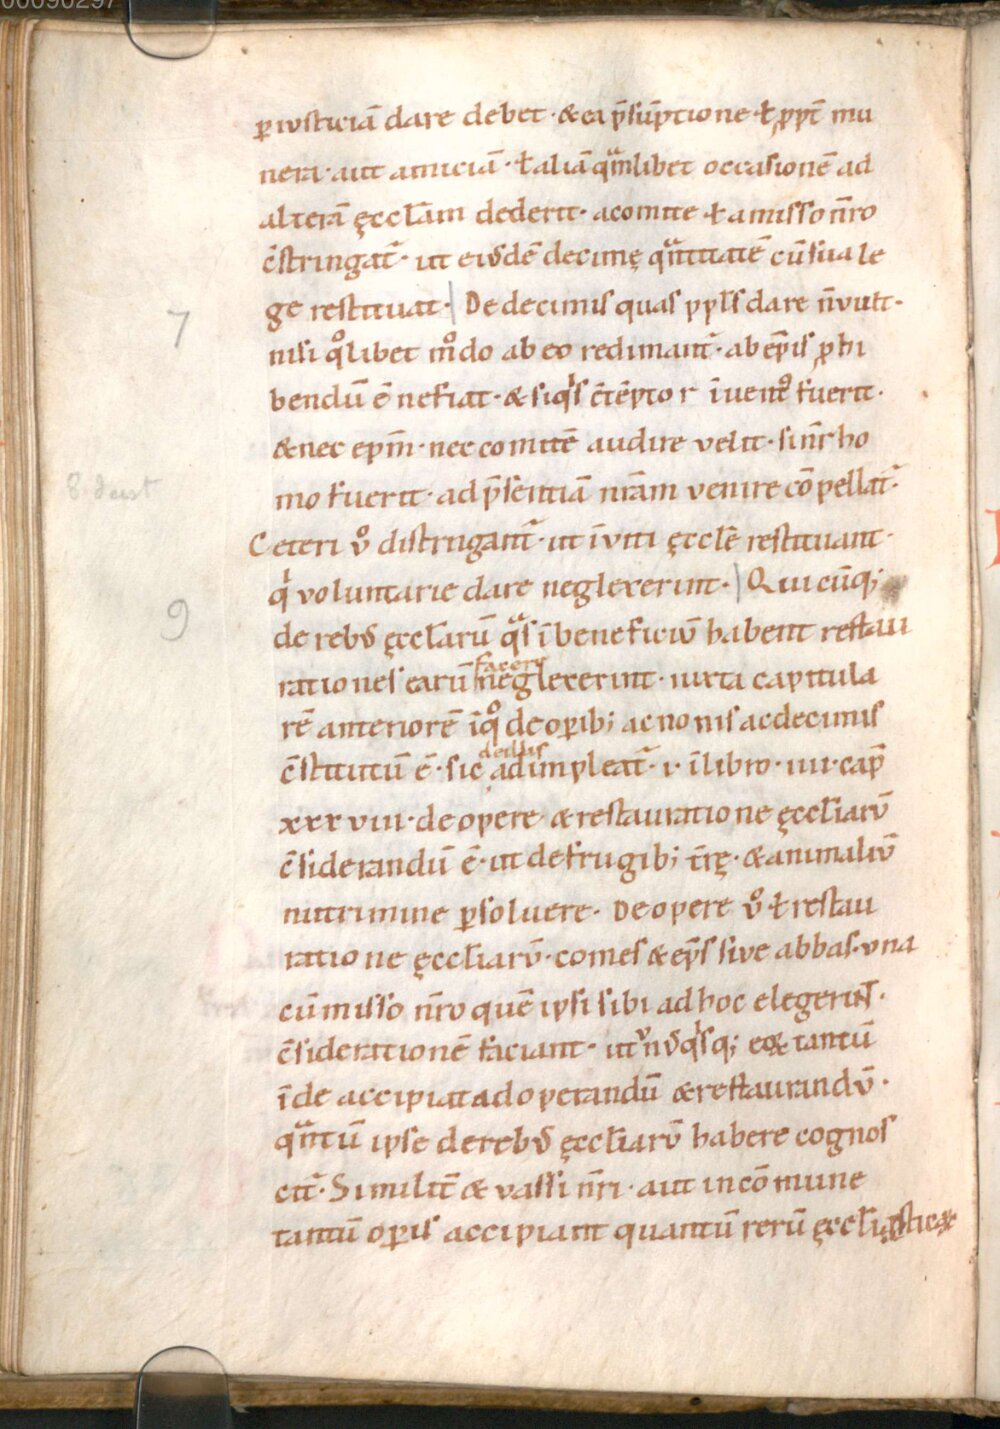 00090297
ꝑ iusticiā dare debet · & ea p̄sūptione ł ꝓpt̄ mu
nera · aut amiciā · ł aliā quālibet occasionē ad
alterā ęccłam dederit · a comite ł a misso nr̄o
c̄stringat᷑ · ut eiusdē decimę quātitatē cū sua le
ge restituat · De decimis quas ppl̄s dare n̄ vult ·
7
nisi qͦlibet mͦdo ab eo redimant᷑ · ab ep̄is ꝓhi
bendū ē ne fiat · & siqͥs c̄tēptor īvent᷒ fuerit ·
& nec epm̄ · nec comitē audire velit · si nr̄ ho
8 deest
mo fuerit · ad p̄sentiā nrām venire cōpellat᷑ ·
Ceteri v̊ distringant᷑ · ut īviti ęccłe restituant ·
qͥ voluntarie dare neglexerint · Qui cūq;
9
de rebꝰ ęccłarū qͣs ī beneficiū habent restau
rationes earū facere neglexerint · iuxta capitula
rē anteriorē īqͦ de oꝑib; ac nonis ac decimis
c̄stitutū ē · sic de illis adimpleat᷑ · i · ī libro · iiii · cap̄
xxxviii · de opere & restauratione ęccłiarū
c̄siderandū ē · ut de frugib; t̄rę · & animaliū
nutrimine ꝑsoluere · De opere v̊ ł restau
ratione ęccłiarū · comes & ep̄s sive abbas · una
cū misso nr̄o quē ipsi sibi ad hoc elegerint ·
c̄siderationē faciant · ut unꝰqͥsq; eoꝝ tantū
īde accipiat ad operandū & restaurandū ·
quātū ipse de rebꝰ ęccłiarū habere cognos
cit᷑ · Similit̄ & vassi nr̄i · aut in cōmune
tantū oꝑis accipiant quantū rerū ęccłiasticaꝝ